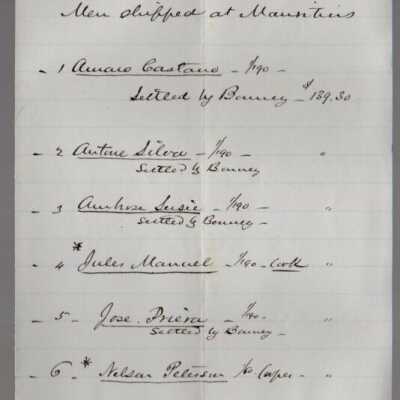 Men shipped at Mauritius
- 1 Amaro Castano - 1/190 -
Settled by Bonney - $139.30
- 2 Antone Silva - 1/190 - "
Settled by Bonney
- 3 Ambrose Susie - 1/190 -
Settled by Bonney - "
*
- 4 Jules Manuel - 1/190 - Cook "
- 5 - Jose Priera - 1/190 -
Settled by Bonney - "
- 6 - * Nelson Peterson Cooper - "